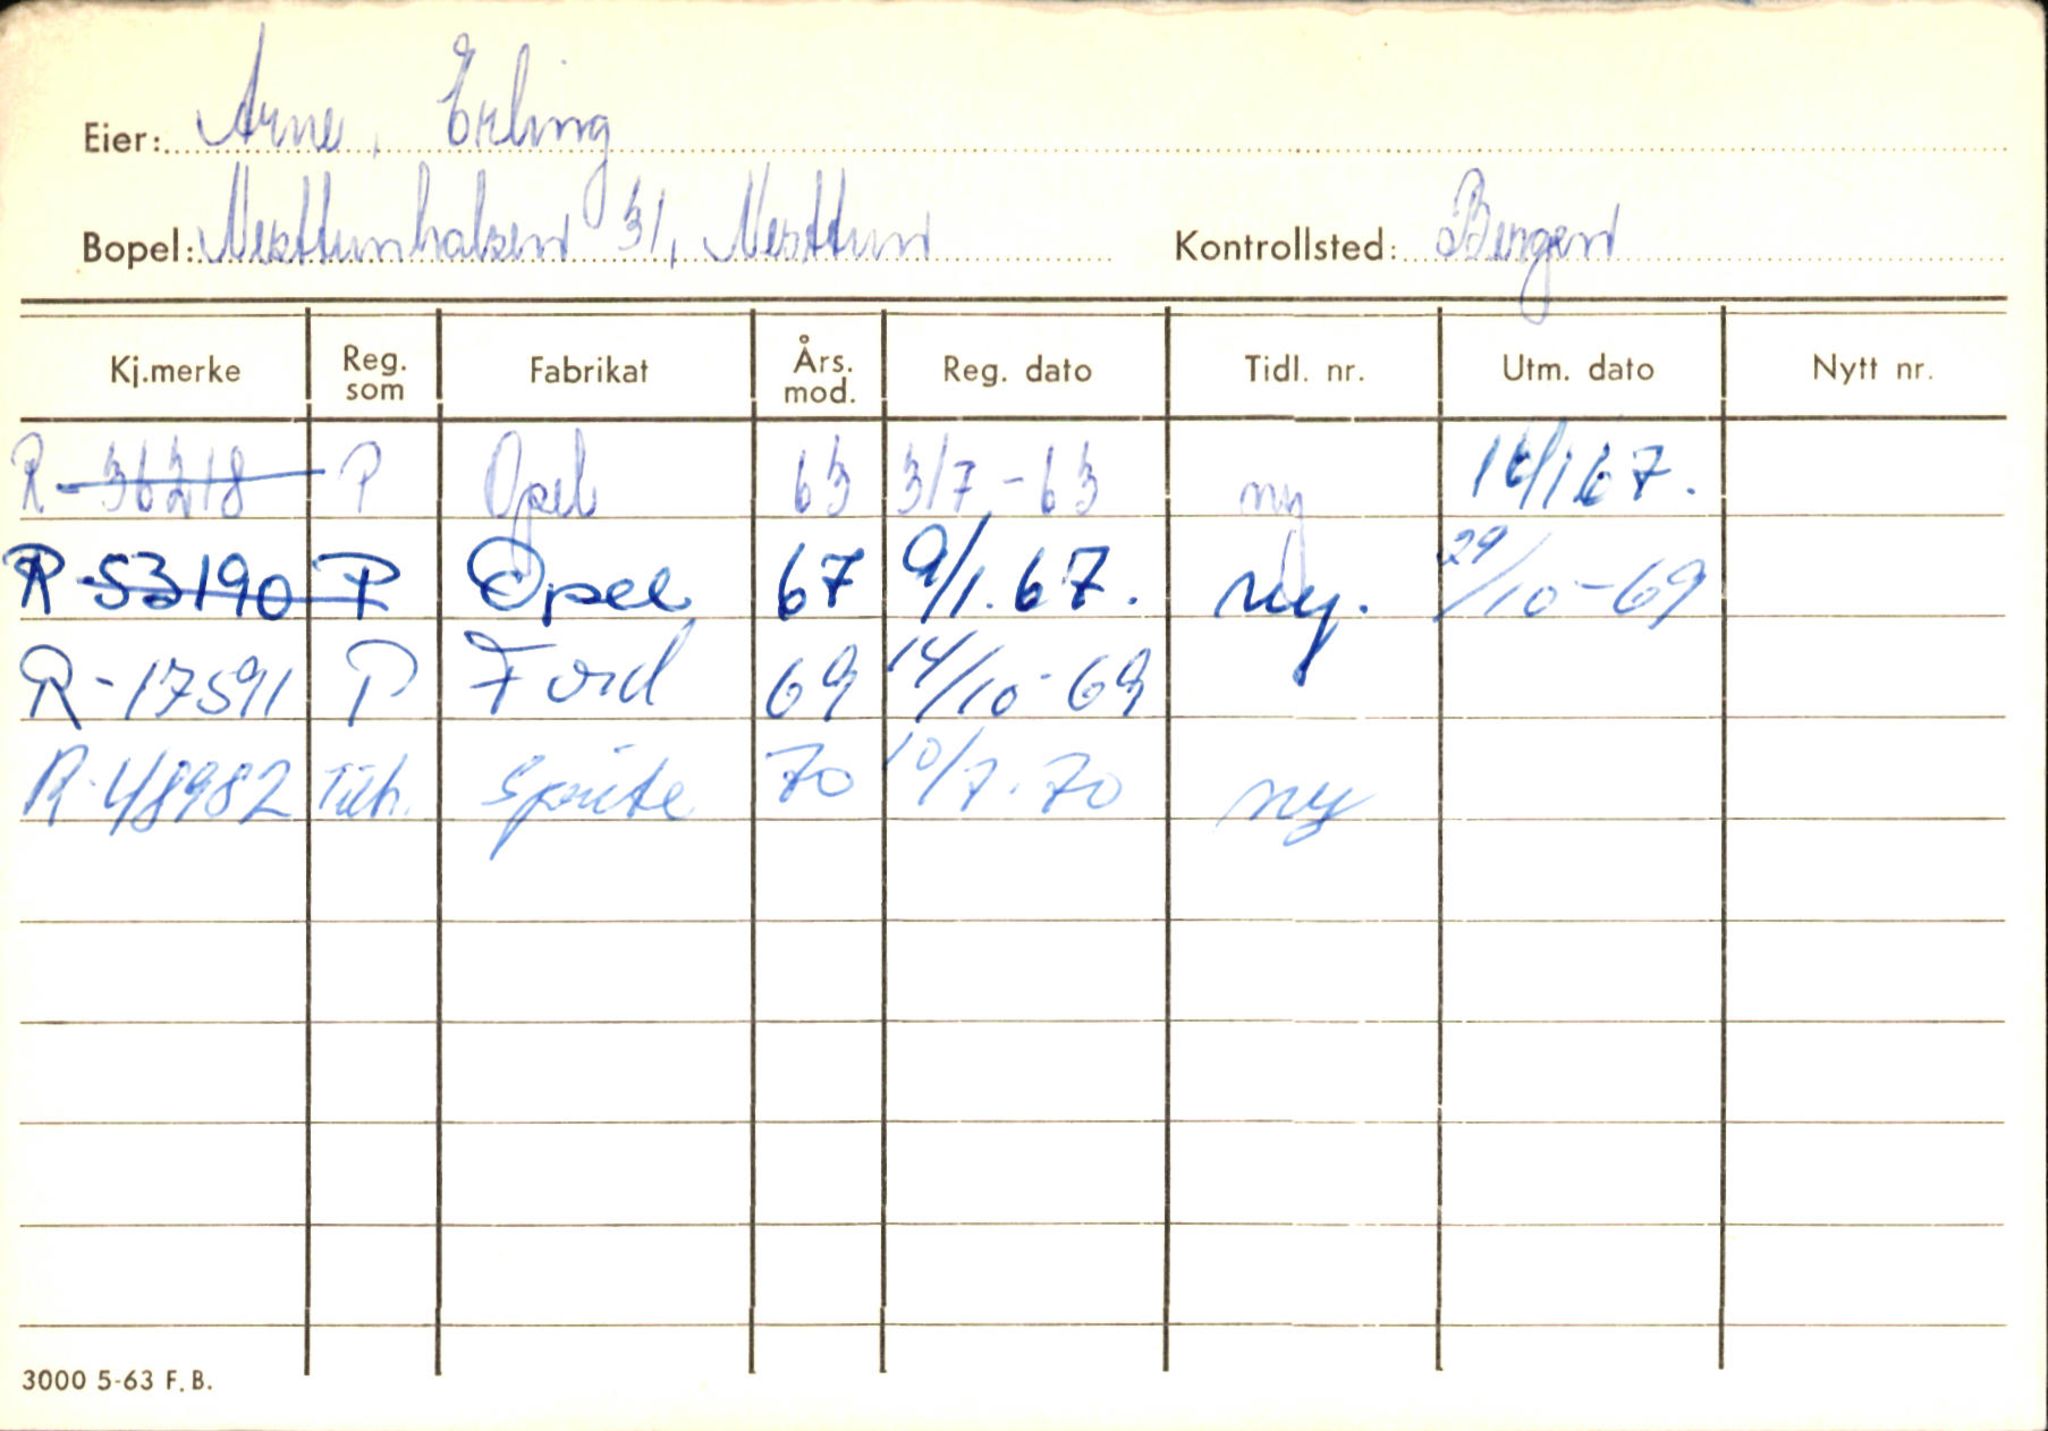 Eier: Arne, Erling
Bopel: Nesttunhalsen 31, Nesttun Kontrollsted: Bergen
Kj.merke Reg. som Fabrikat Års. mod. Reg. dato Tidl. nr. Utm. dato Nytt nr.
R-36218 P Opel 63 3/7-63 ny 16/1.67.
R-53190 P Opel 67 9/1.67. ny. 29/10-69
R-17591 P Ford 69 14/10-69
R-48982 Tilh. Sprite 70 10/7.70 ny
3000 5-63 F.B.